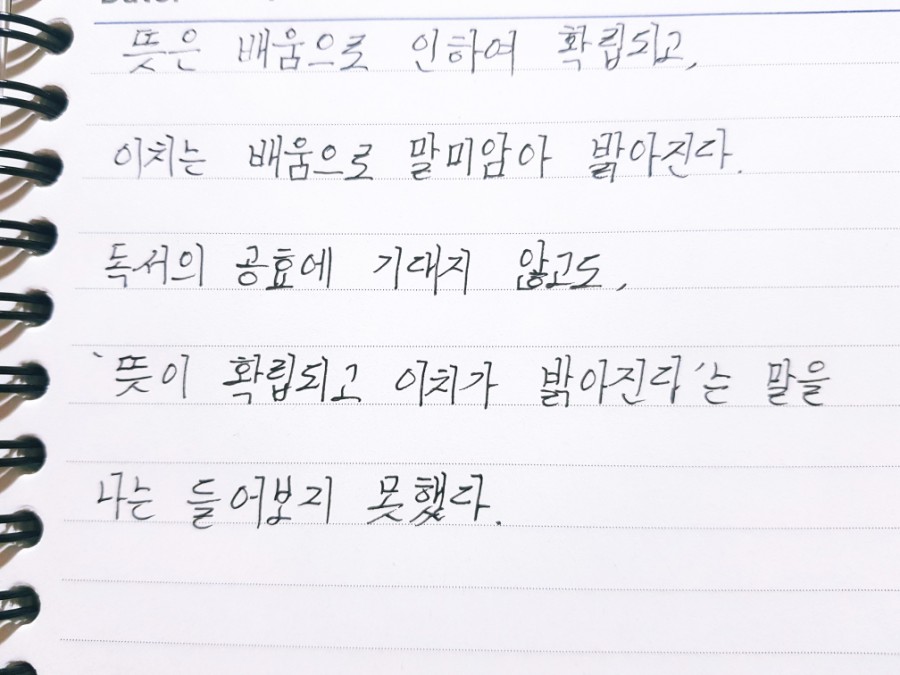 뜻은 배움으로 인하여 확립되고,
이치는 배움으로 말미암아 밝아진다.
독서의 공효에 기대지 않고도,
'뜻이 확립되고 이치가 밝아진다'는 말을
나는 들어보지 못했다.